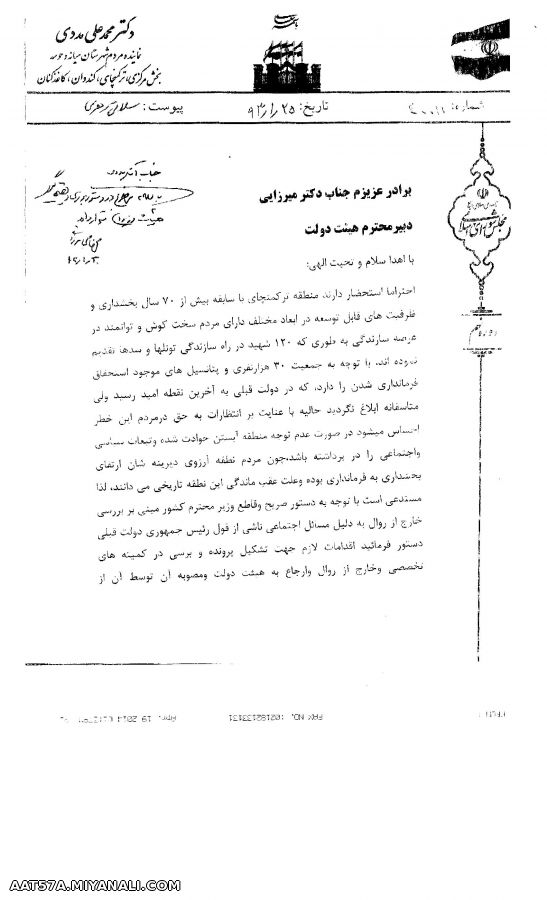 دکتر محمد علی مددی
نماینده مردم شهرستان میانه
بخش مرکزی، ترکمنچای، کندوان، کاغذکنان
شماره:
تاریخ:
پیوست:
مجلس شورای اسلامی
برادر عزیزم جناب دکتر میرزایی
دبیر محترم هیئت دولت
با اهدا سلام و تحیت الهی:
احتراما استحضار دارند منطقه ترکمنچای با سابقه بیش از ۷۰ سال بخشداری و
ظرفیت های قابل توسعه در ابعاد مختلف دارای مردم سخت کوش و توانمند در
عرصه سازندگی به طوری که ۱۲۰ شهید در راه سازندگی تونلها و سدها تقدیم
نموده اند. با توجه به جمعیت ۳۰ هزارنفری و پتانسیل های موجود استحقاق
فرمانداری شدن را دارد، که در دولت قبلی به آخرین نقطه امید رسید ولی
متاسفانه ابلاغ نگردید حالیه با عنایت بر انتظارات به حق درمردم این خطر
احساس میشود در صورت عدم توجه منطقه آبستن حوادث شده وتبعات سیاسی
واجتماعی را در برداشته باشد،چون مردم نطقه آرزوی دیرینه شان ارتقای
بخشداری به فرمانداری بوده وعلت عقب ماندگی این نطقه تاریخی می دانند، لذا
مستدعی است با توجه به دستور صریح وقاطع وزیر محترم کشور مبنی بر بررسی
خارج از روال به دلیل مسائل اجتماعی ناشی از قول رئیس جمهوری دولت قبلی
دستور فرمائید اقدامات لازم جهت تشکیل پرونده و برسی در کمیته های
تخصصی وخارج از روال وارجاع به هیئت دولت ومصوبه آن توسط آن از
FAX NO. :02182133131
Apr. 19 2014
AATS7A.MIYANALI.COM